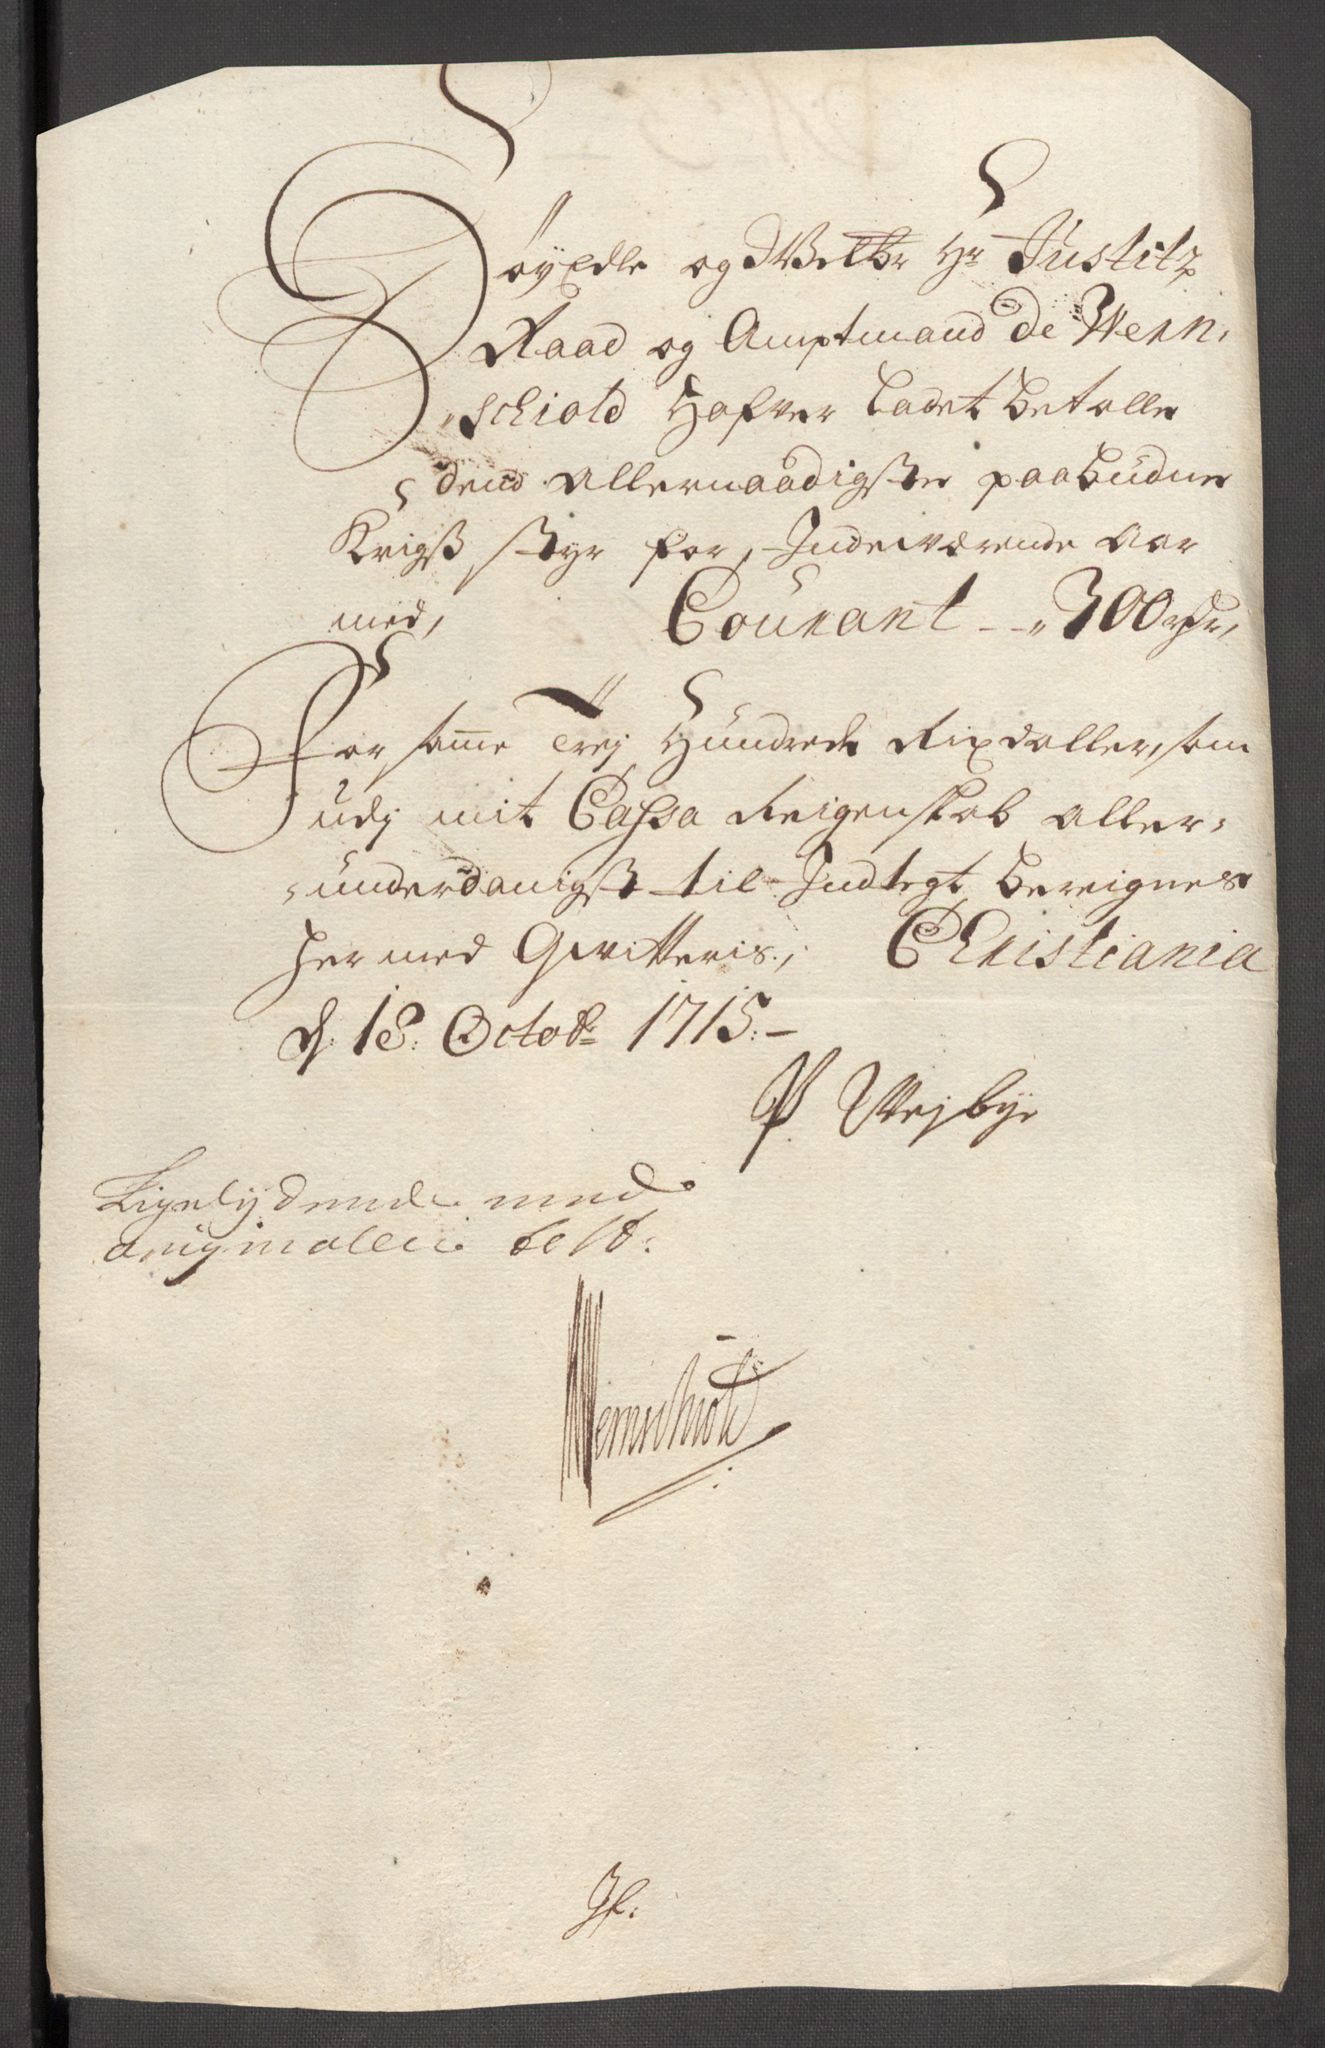 Høyædle og Welbr Hr Justitz
Raad og Amptmand de Wern,
„schiold Hafver ladet betalle
dend allernaadigste paabudne
Krigs Styr for, Indeværende Aar
med, Courant - „ 300 rdr,
For samme Trej Hundrede Rixdaller, som
udj mit Cassa Reigenskab aller-
„underdanigst til Indtegt bereignes
hermed Qvitteris, Christiania
d. 18. Octobr 1715. -
P Wejbye
Ligelydende med
originalen test:
Wernschiold